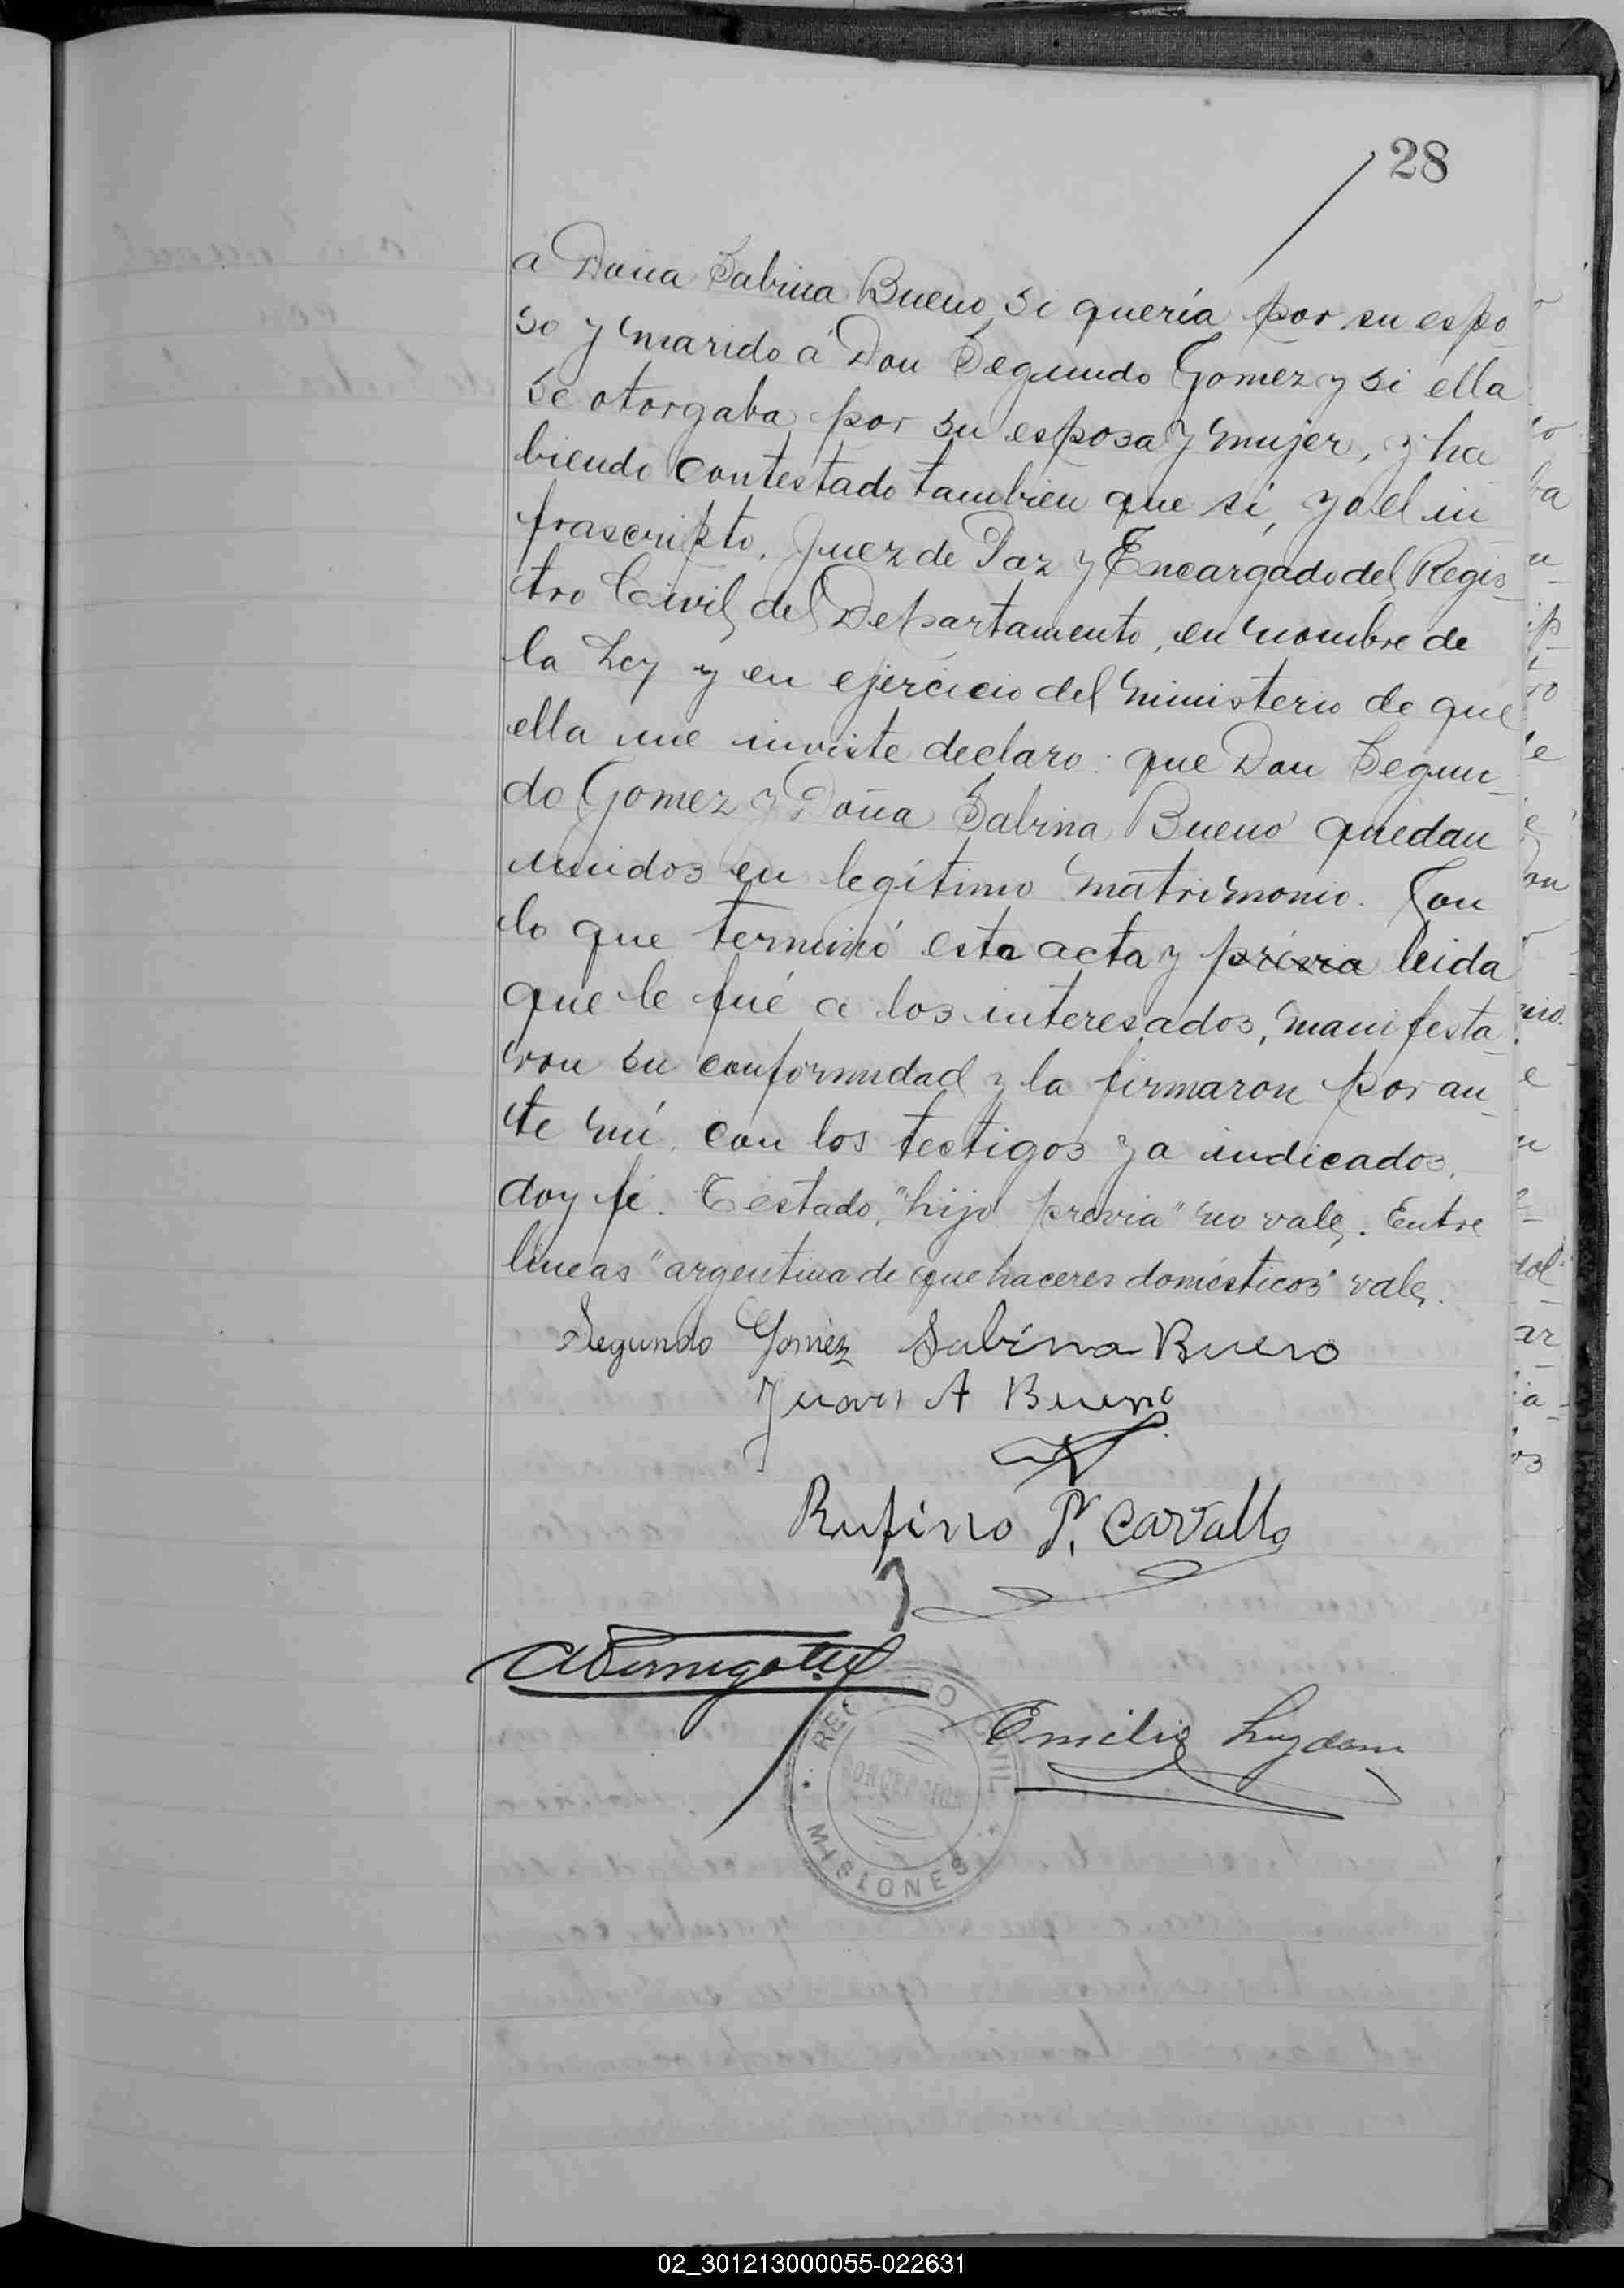 28
a Doña Sabina Bueno si quería por su espo
so y marido á Don Segundo Gomez y si ella
se otorgaba por su esposa y mujer, y ha
biendo contestado tambien que si, yo el in
frascripto, Juez de Paz y Encargado del Regis-
tro Civil del Departamento, en nombre de
la Ley y en ejercicio del ministerio de que
ella me inviste declaro: que Don Segun-
do Gomez y Doña Sabina Bueno quedan
unidos en legítimo matrimonio. Con
lo que terminó esta acta y prévia leida
que le fué a los interesados, manifesta-
ron su conformidad y la firmaron por an-
te mí, con los testigos ya indicados,
doy fé. Testado, "hijo previa" no vale. Entre
lineas "argentina de que haceres domésticos" vale.
Segundo Gomez Sabina Bueno
Juan A Bueno
Rufino P. Carvallo
Emilio
REGISTRO CIVIL
MISIONES
02_301213000055-022631